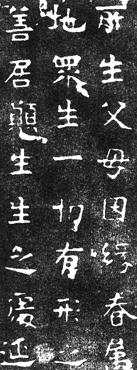 所生父母因緣眷
地眾生一切有形之
善居願生生之處